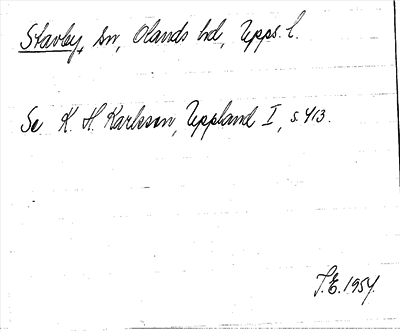 Stavby, sn, Olands hd, Upps. l.
Se K. H. Karlsson, Uppland I, s. 413.
T.E. 1954.